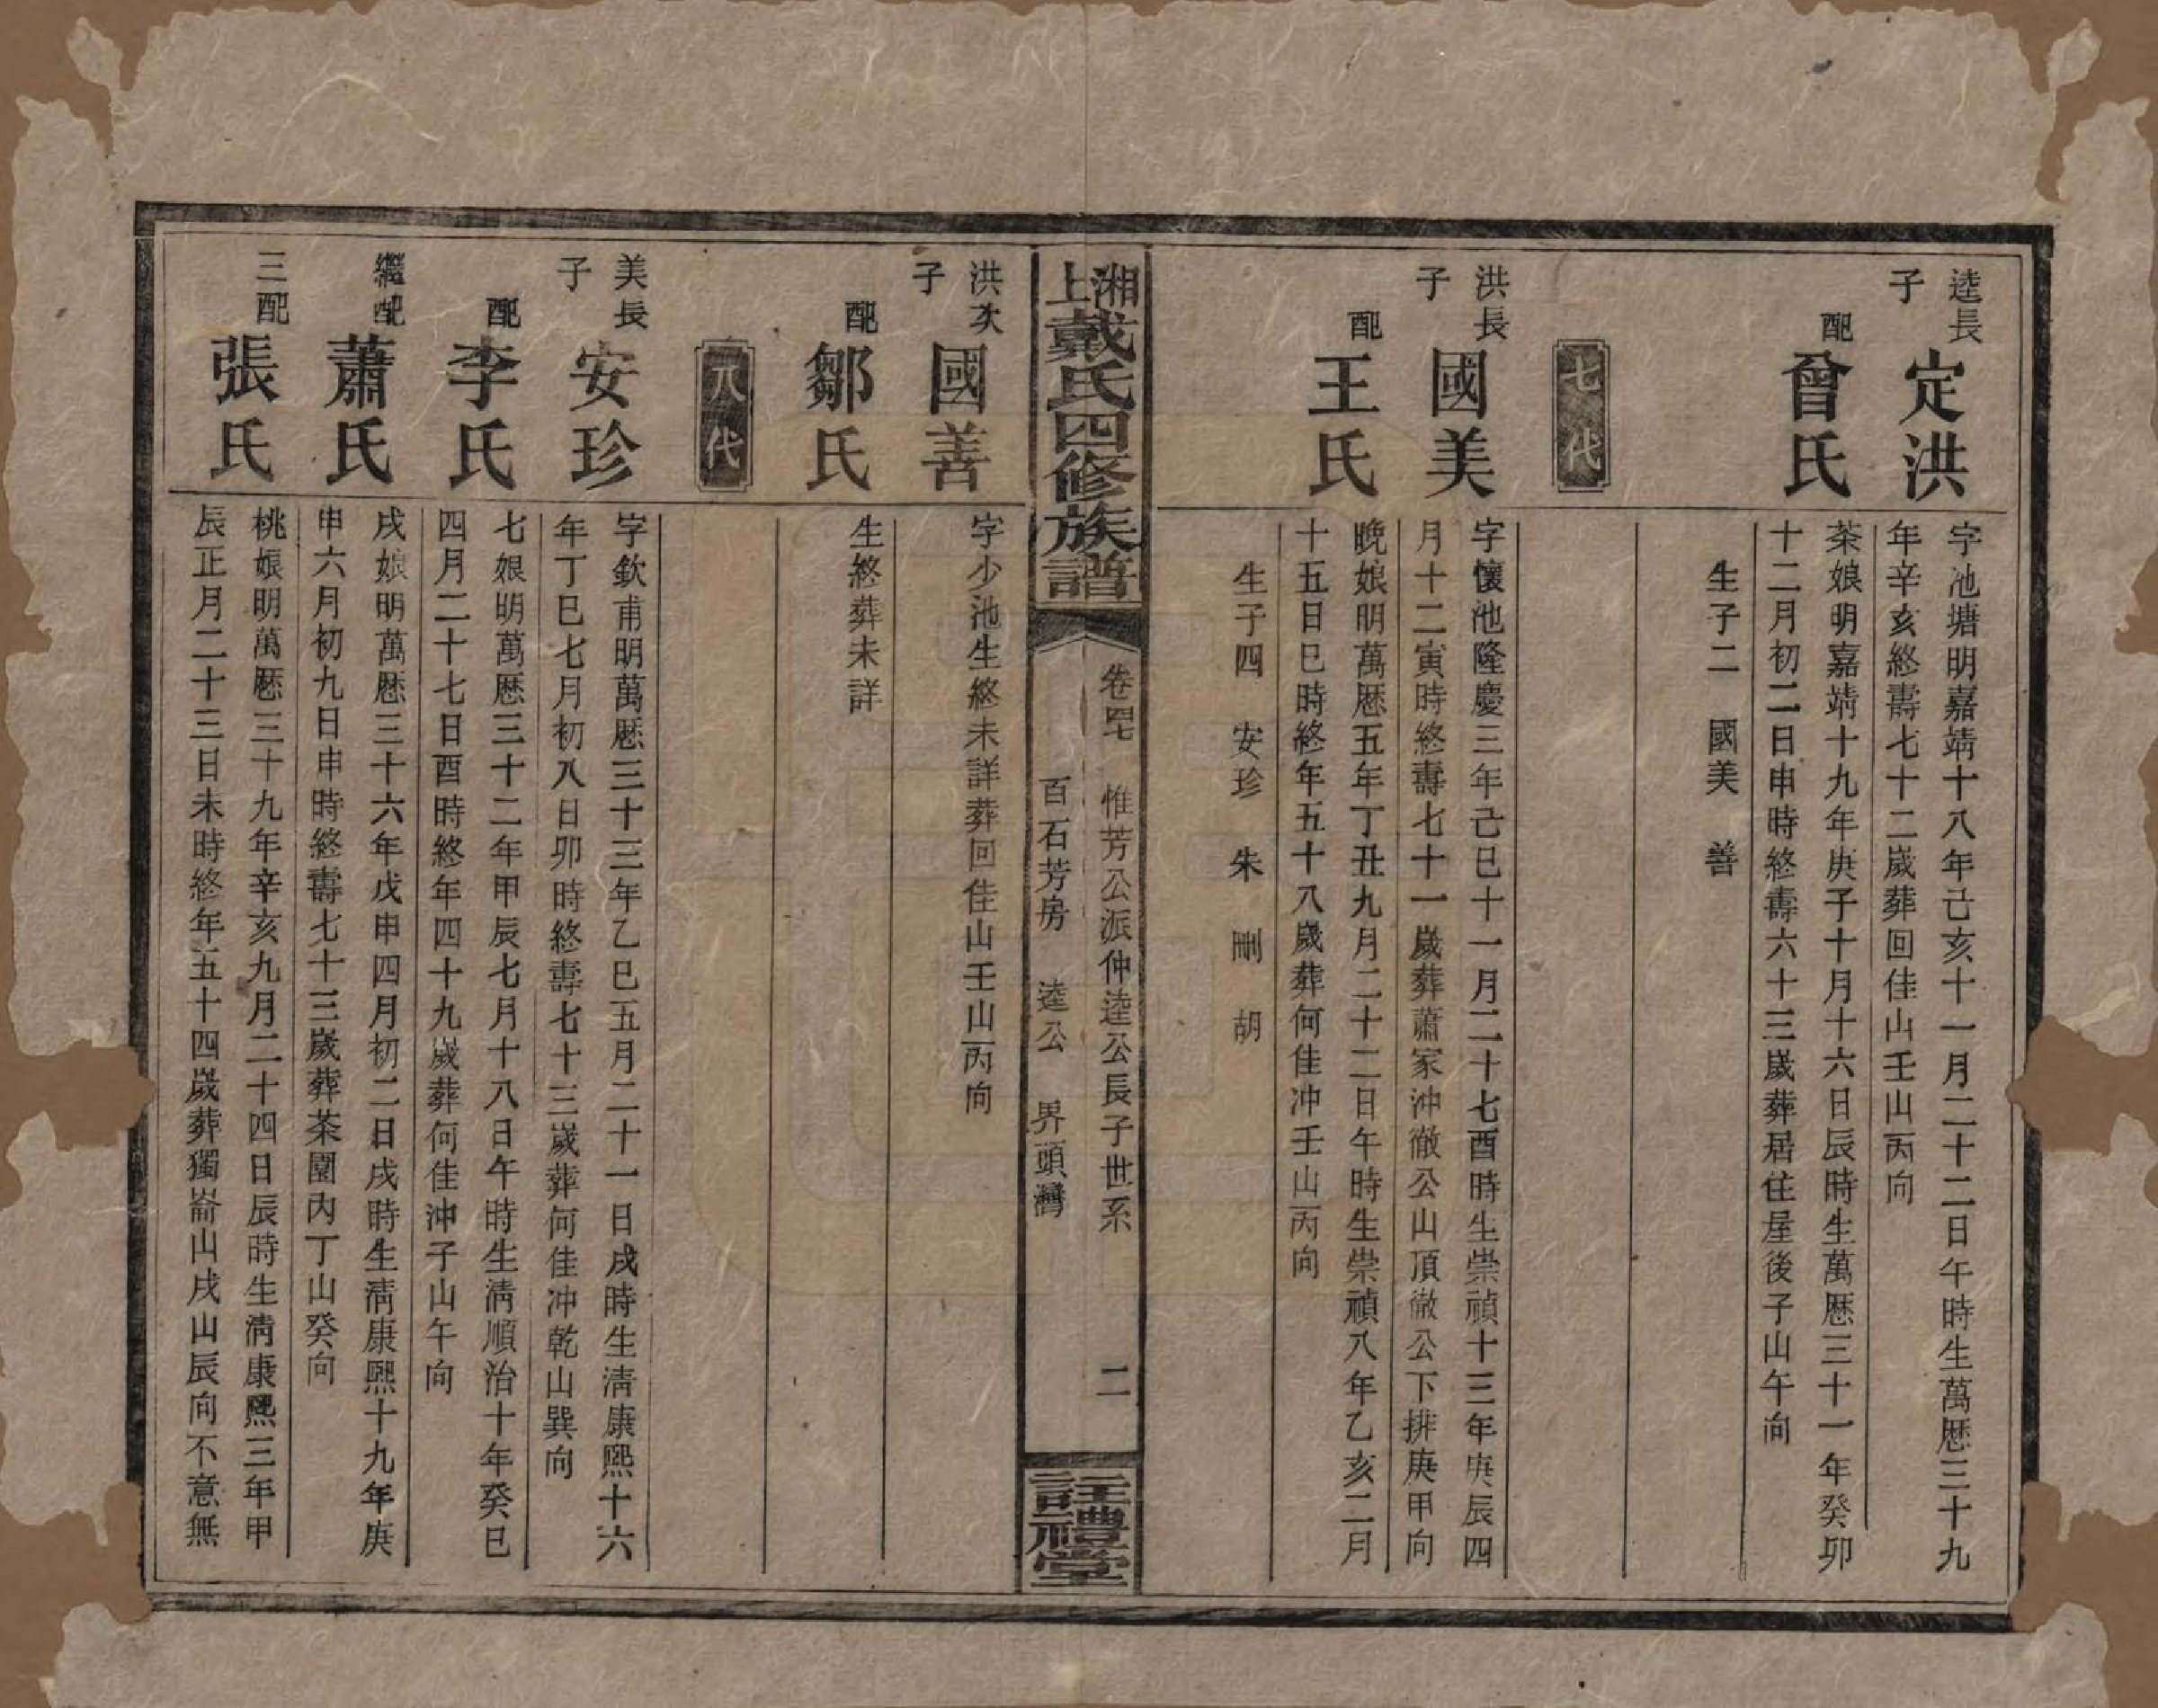 逵長子
定洪
字池塘明嘉靖十八年己亥十一月二十二日午時生萬厯三十九
年辛亥終壽七十二歲葬回佳山壬山丙向
配
曾氏
茶娘明嘉靖十九年庚子十月十六日辰時生萬厯三十一年癸卯
十二月初二日申時終壽六十三歲葬居住屋後子山午向
生子二 國美 善
七代
洪長子
國美
字懷池隆慶三年己巳十一月二十七酉時生崇禎十三年庚辰四
月十二寅時終壽七十一歲葬蕭家沖徹公山頂徹公下排庚甲向
配
王氏
晚娘明萬厯五年丁丑九月二十二日午時生崇禎八年乙亥二月
十五日巳時終年五十八歲葬何佳冲壬山丙向
生子四 安珍 朱 剛 胡
湘上戴氏四修族譜
卷四七 惟芳公派仲逵公長子世系 二
百石芳房 逵公 界頭灣
註禮堂
洪次子
國善
字少池生終未詳葬回佳山壬山丙向
配
鄒氏
生終葬未詳
八代
美長子
安珍
字欽甫明萬厯三十三年乙巳五月二十一日戌時生淸康熙十六
年丁巳七月初八日卯時終壽七十三歲葬何佳冲乾山巽向
配
李氏
七娘明萬厯三十二年甲辰七月十八日午時生淸順治十年癸巳
四月二十七日酉時終年四十九歲葬何佳沖子山午向
繼配
蕭氏
戌娘明萬厯三十六年戊申四月初二日戌時生淸康熙十九年庚
申六月初九日申時終壽七十三歲葬茶園內丁山癸向
三配
張氏
桃娘明萬厯三十九年辛亥九月二十四日辰時生淸康熙三年甲
辰正月二十三日未時終年五十四歲葬獨崙山戌山辰向不意無